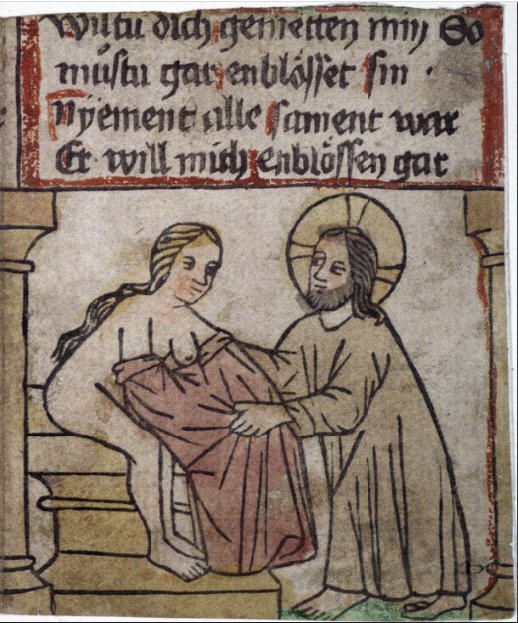 Wiltu dich genietten min So
müstu gar enblösset sin ·
Nyement alle sament war
Er will mich enblössen gar